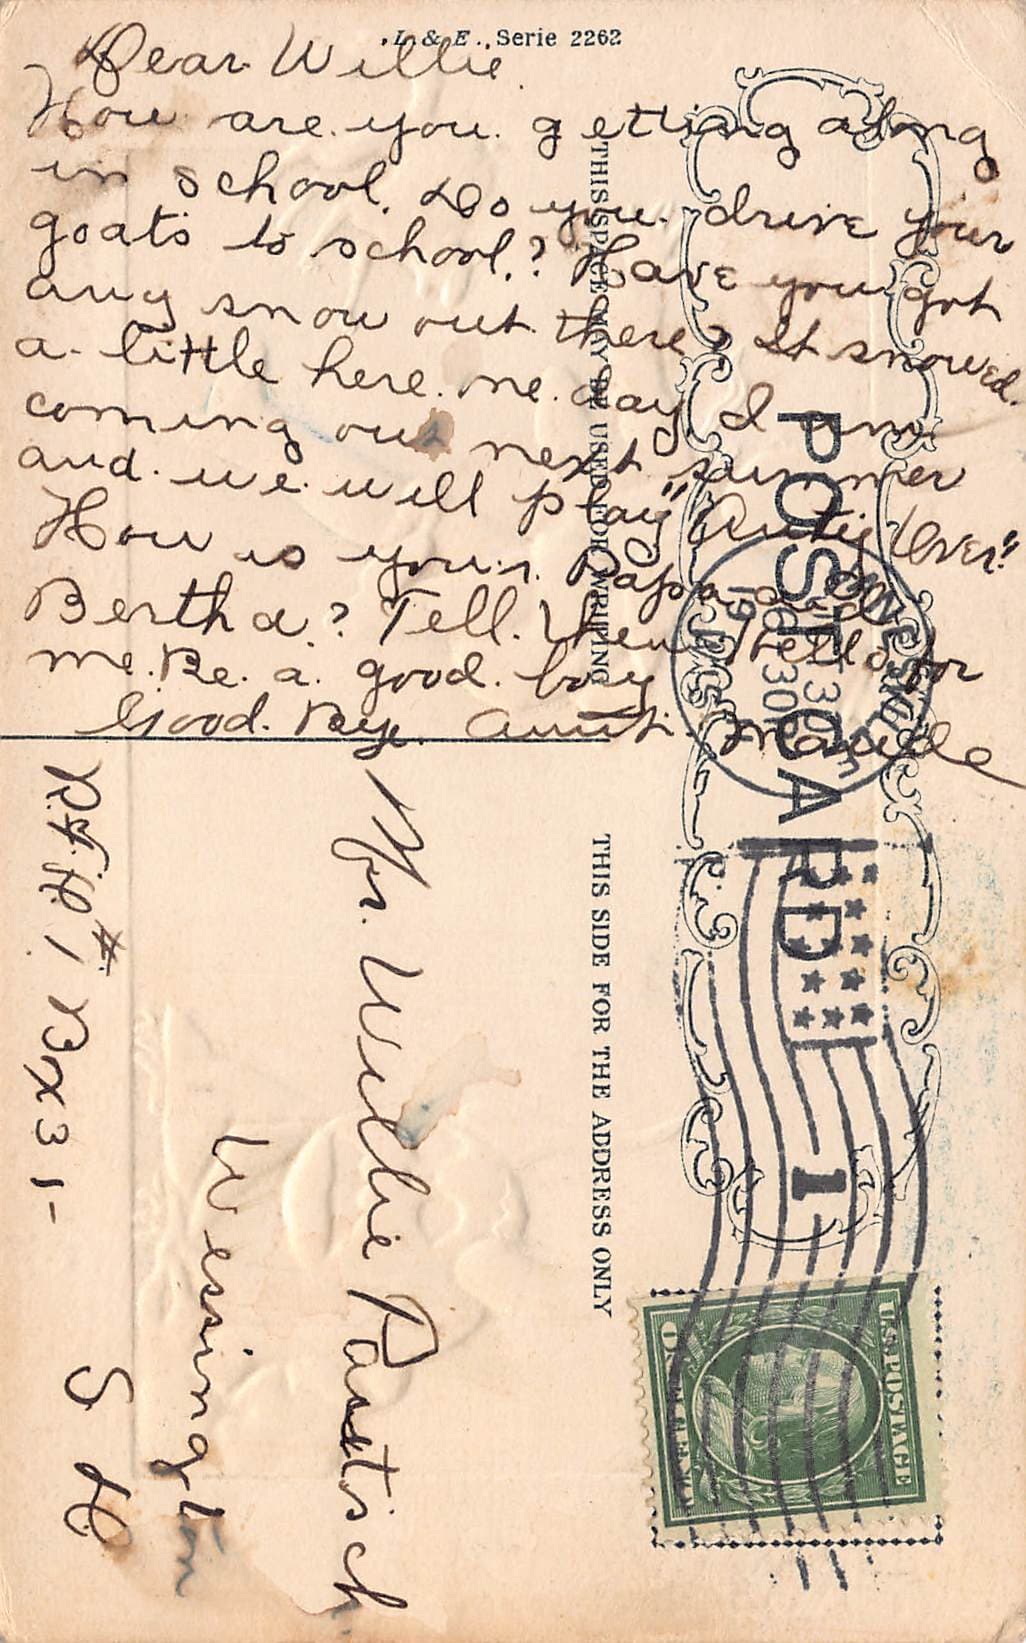 L & E., Serie 2262
Dear Willie
How are you getting along
in school. Do you drive your
goats to school? Have you got
any snow out there? It snowed
a little here one day I am
coming out next summer
and we will play "Anty Over"
How is your Papa and
Bertha? Tell them hello for
me. Be a good boy
Good Bye. Aunt
THIS SPACE MAY BE USED FOR WRITING
POST CARD
THIS SIDE FOR THE ADDRESS ONLY
U.S. POSTAGE
ONE CENT
1
Mr. Willie Pautsch
Wessington
S D.
R.F.D. #1 Bx 31-